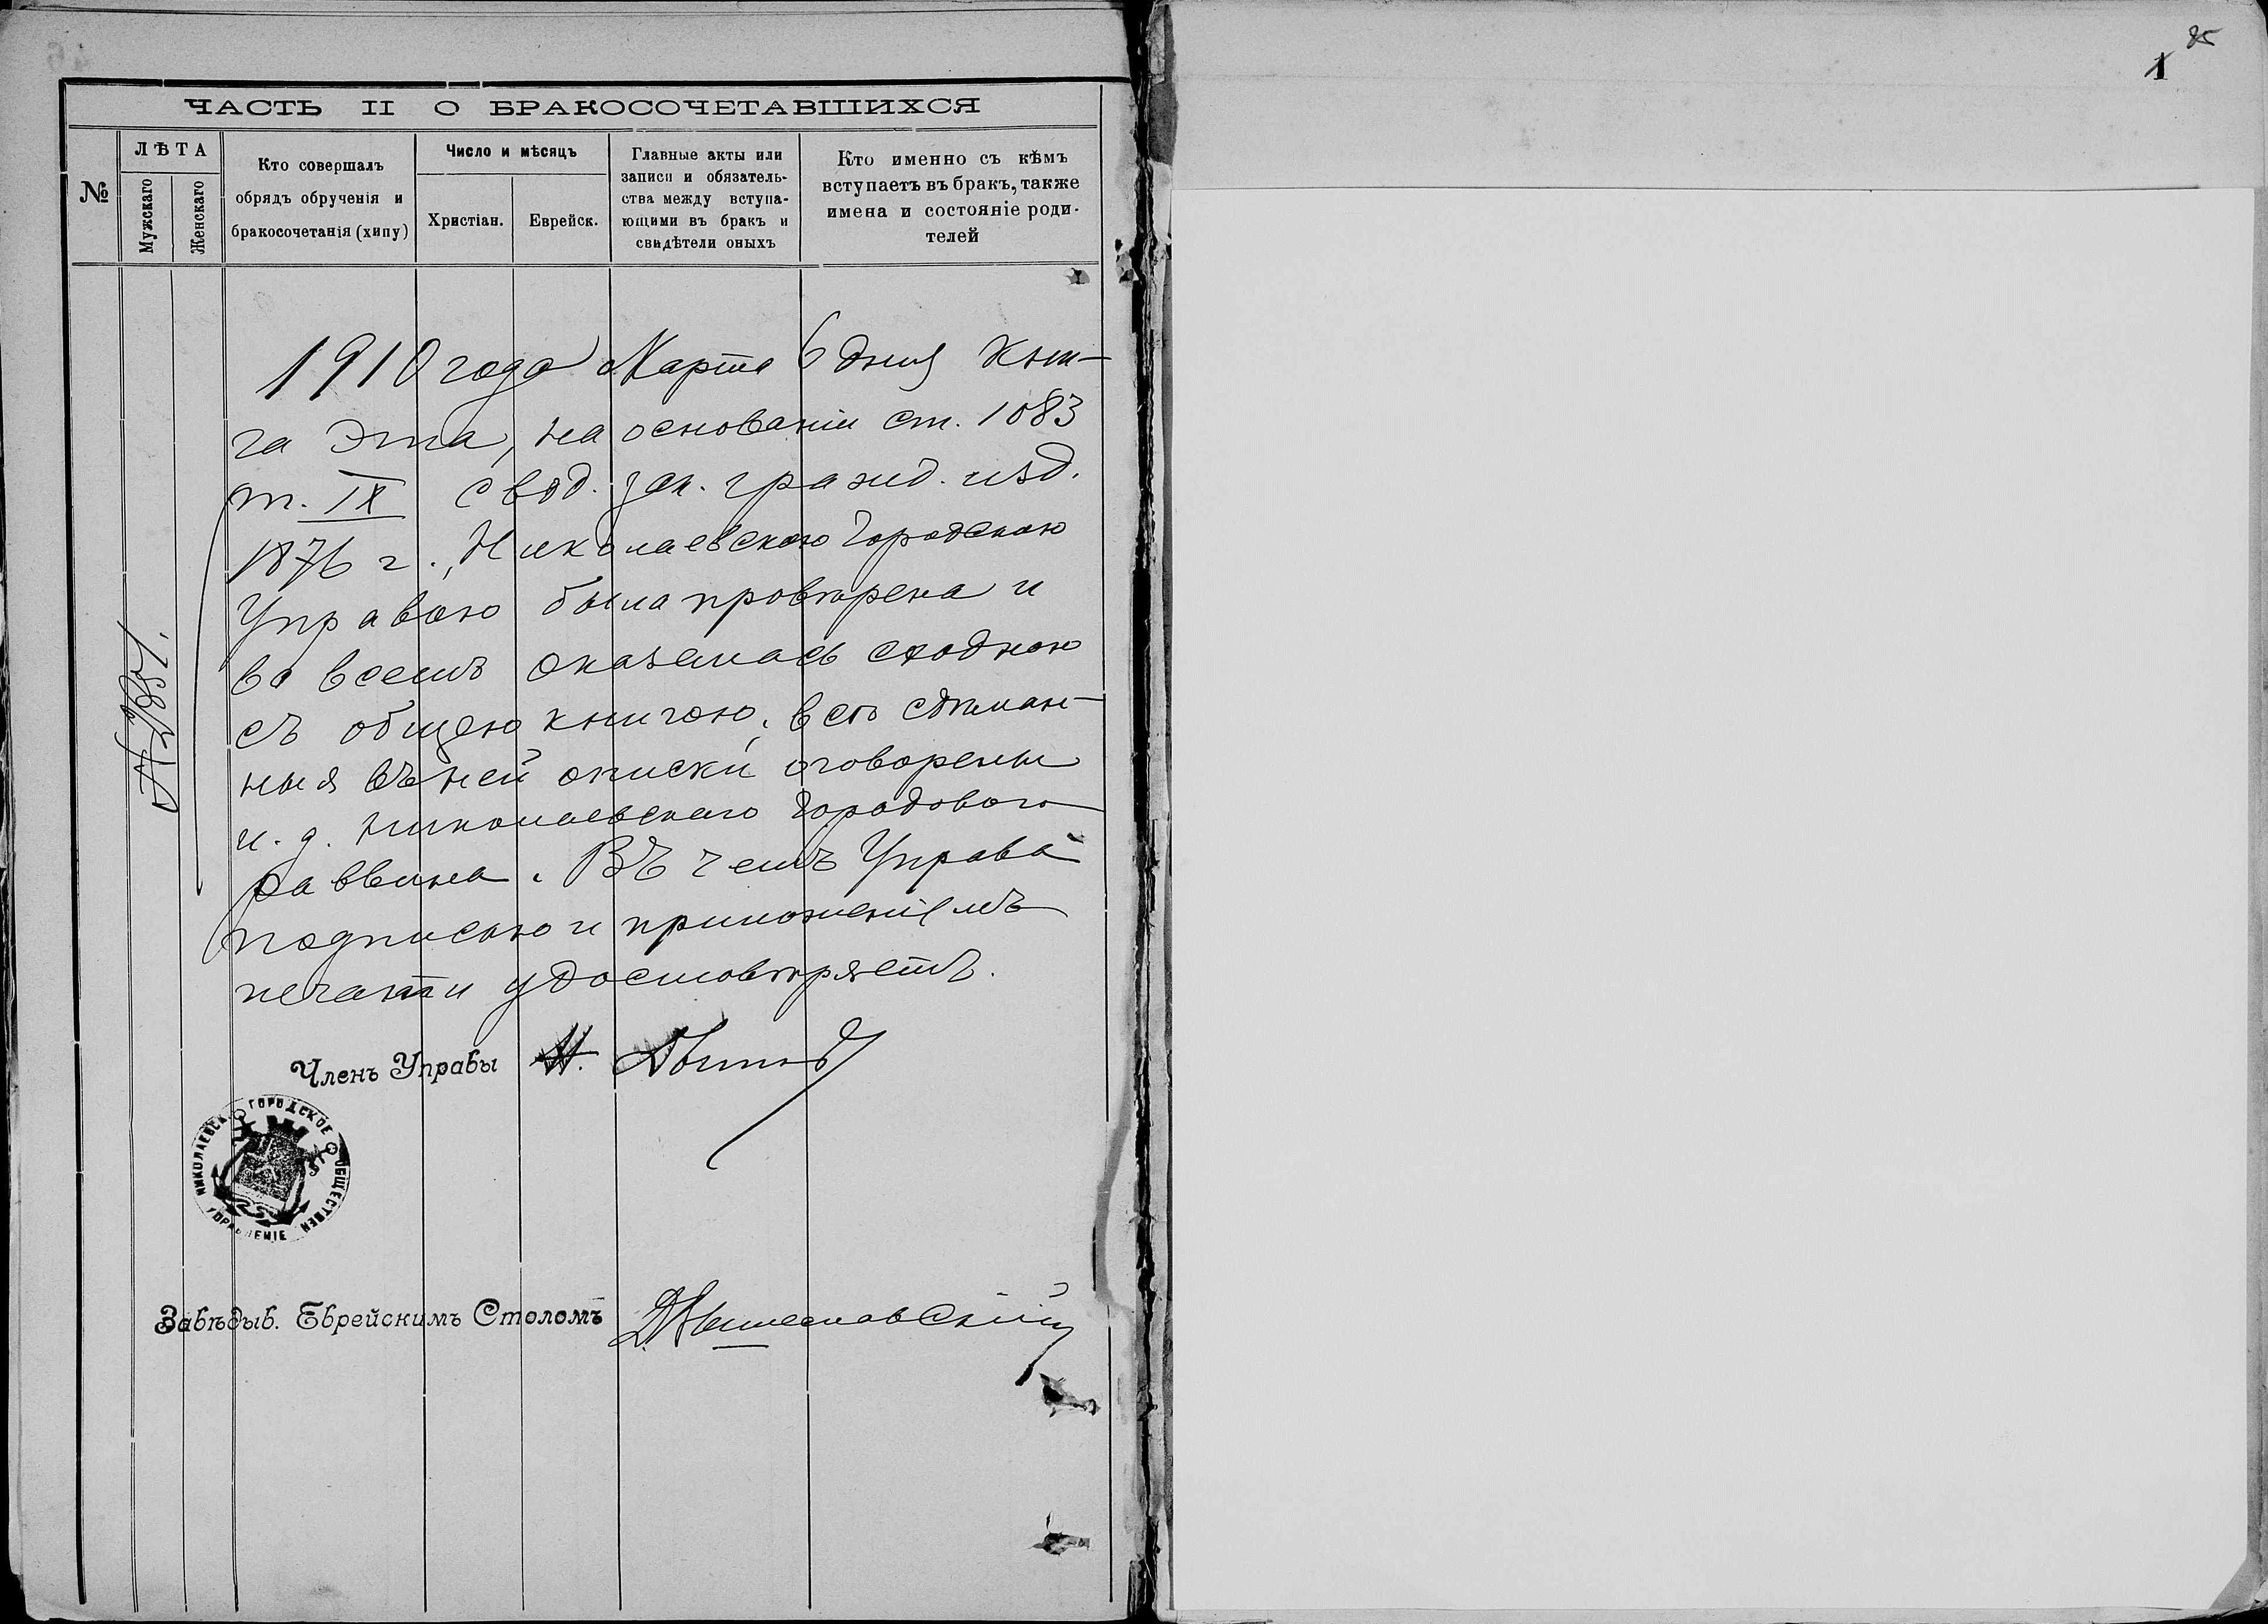 85
1
ЧАСТЬ II О БРАКОСОЧЕТАВШИХСЯ
№
ЛѢТА
Мужскаго
Женскаго
Кто совершалъ
обрядъ обрученія и
бракосочетанія (хипу)
Число и мѣсяцъ
Христіан.
Еврейск.
Главные акты или
записи и обязатель-
ства между вступа-
ющими въ бракъ и
свидѣтели оныхъ
Кто именно съ кѣмъ
вступаетъ въ бракъ, также
имена и состояніе роди-
телей
1910 года Марта 6 дня Кни-
га эта, на основаніи ст. 1083
т. IX свод. зак. гражд. изд.
1876 г., Николаевскою Городскою
Управою была провѣрена и
во всемъ оказалась сходною
съ общею книгою, всѣ сдѣлан-
ныя въ ней описки оговорены
и. д. Николаевскаго Городового
раввина. Въ чемъ Управа
подписью и приложеніемъ
печати удостовѣряетъ.
№ 2851.
Членъ Управы Н.
НИКОЛАЕВСК. ГОРОДСКОЕ ОБЩЕСТВЕН УПРАВЛЕНІЕ
Завѣдыв. Еврейскимъ Столомъ